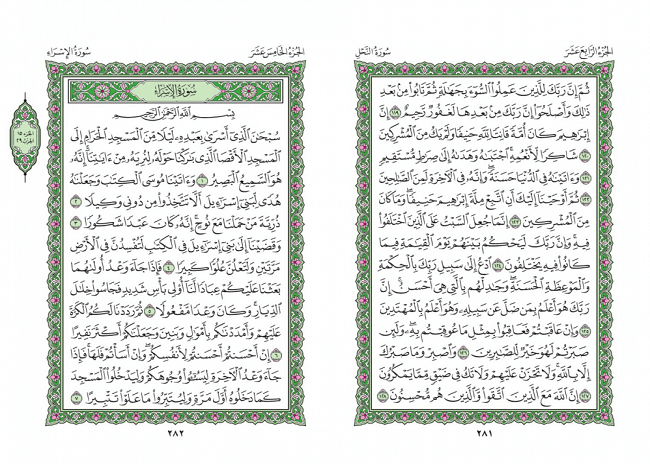 الجزء الرابع عشر
سورة النحل
ثُمَّ إِنَّ رَبَّكَ لِلَّذِينَ عَمِلُوا۟ ٱلسُّوٓءَ بِجَهَٰلَةٍ ثُمَّ تَابُوا۟ مِنۢ بَعْدِ
ذَٰلِكَ وَأَصْلَحُوٓا۟ إِنَّ رَبَّكَ مِنۢ بَعْدِهَا لَغَفُورٌ رَّحِيمٌ ١١٩ إِنَّ
إِبْرَٰهِيمَ كَانَ أُمَّةً قَانِتًا لِّلَّهِ حَنِيفًا وَلَمْ يَكُ مِنَ ٱلْمُشْرِكِينَ
١٢٠ شَاكِرًا لِّأَنْعُمِهِ ٱجْتَبَىٰهُ وَهَدَىٰهُ إِلَىٰ صِرَٰطٍ مُّسْتَقِيمٍ
١٢١ وَءَاتَيْنَٰهُ فِى ٱلدُّنْيَا حَسَنَةً وَإِنَّهُۥ فِى ٱلْـَٔاخِرَةِ لَمِنَ ٱلصَّٰلِحِينَ
١٢٢ ثُمَّ أَوْحَيْنَآ إِلَيْكَ أَنِ ٱتَّبِعْ مِلَّةَ إِبْرَٰهِيمَ حَنِيفًا وَمَا كَانَ
مِنَ ٱلْمُشْرِكِينَ ١٢٣ إِنَّمَا جُعِلَ ٱلسَّبْتُ عَلَى ٱلَّذِينَ ٱخْتَلَفُوا۟
فِيهِ وَإِنَّ رَبَّكَ لَيَحْكُمُ بَيْنَهُمْ يَوْمَ ٱلْقِيَٰمَةِ فِيمَا
كَانُوا۟ فِيهِ يَخْتَلِفُونَ ١٢٤ ٱدْعُ إِلَىٰ سَبِيلِ رَبِّكَ بِٱلْحِكْمَةِ
وَٱلْمَوْعِظَةِ ٱلْحَسَنَةِ وَجَٰدِلْهُم بِٱلَّتِى هِىَ أَحْسَنُ إِنَّ
رَبَّكَ هُوَ أَعْلَمُ بِمَن ضَلَّ عَن سَبِيلِهِۦ وَهُوَ أَعْلَمُ بِٱلْمُهْتَدِينَ
١٢٥ وَإِنْ عَاقَبْتُمْ فَعَاقِبُوا۟ بِمِثْلِ مَا عُوقِبْتُم بِهِۦ وَلَئِن
صَبَرْتُمْ لَهُوَ خَيْرٌ لِّلصَّٰبِرِينَ ١٢٦ وَٱصْبِرْ وَمَا صَبْرُكَ
إِلَّا بِٱللَّهِ وَلَا تَحْزَنْ عَلَيْهِمْ وَلَا تَكُ فِى ضَيْقٍ مِّمَّا يَمْكُرُونَ
١٢٧ إِنَّ ٱللَّهَ مَعَ ٱلَّذِينَ ٱتَّقَوا۟ وَّٱلَّذِينَ هُم مُّحْسِنُونَ ١٢٨
٢٨١
الجزء الخامس عشر
سورة الإسراء
سورة الإسراء
بِسْمِ ٱللَّهِ ٱلرَّحْمَٰنِ ٱلرَّحِيمِ
سُبْحَٰنَ ٱلَّذِىٓ أَسْرَىٰ بِعَبْدِهِۦ لَيْلًا مِّنَ ٱلْمَسْجِدِ ٱلْحَرَامِ إِلَى
ٱلْمَسْجِدِ ٱلْأَقْصَا ٱلَّذِى بَٰرَكْنَا حَوْلَهُۥ لِنُرِيَهُۥ مِنْ ءَايَٰتِنَآ إِنَّهُۥ
هُوَ ٱلسَّمِيعُ ٱلْبَصِيرُ ١ وَءَاتَيْنَا مُوسَى ٱلْكِتَٰبَ وَجَعَلْنَٰهُ
هُدًى لِّبَنِىٓ إِسْرَٰٓءِيلَ أَلَّا تَتَّخِذُوا۟ مِن دُونِى وَكِيلًا ٢
ذُرِّيَّةَ مَنْ حَمَلْنَا مَعَ نُوحٍ إِنَّهُۥ كَانَ عَبْدًا شَكُورًا ٣
وَقَضَيْنَآ إِلَىٰ بَنِىٓ إِسْرَٰٓءِيلَ فِى ٱلْكِتَٰبِ لَتُفْسِدُنَّ فِى ٱلْأَرْضِ
مَرَّتَيْنِ وَلَتَعْلُنَّ عُلُوًّا كَبِيرًا ٤ فَإِذَا جَآءَ وَعْدُ أُولَىٰهُمَا
بَعَثْنَا عَلَيْكُمْ عِبَادًا لَّنَآ أُو۟لِى بَأْسٍ شَدِيدٍ فَجَاسُوا۟ خِلَٰلَ
ٱلدِّيَارِ وَكَانَ وَعْدًا مَّفْعُولًا ٥ ثُمَّ رَدَدْنَا لَكُمُ ٱلْكَرَّةَ
عَلَيْهِمْ وَأَمْدَدْنَٰكُم بِأَمْوَٰلٍ وَبَنِينَ وَجَعَلْنَٰكُمْ أَكْثَرَ نَفِيرًا
٦ إِنْ أَحْسَنتُمْ أَحْسَنتُمْ لِأَنفُسِكُمْ وَإِنْ أَسَأْتُمْ فَلَهَا فَإِذَا
جَآءَ وَعْدُ ٱلْـَٔاخِرَةِ لِيَسُـۥٓـُٔوا۟ وُجُوهَكُمْ وَلِيَدْخُلُوا۟ ٱلْمَسْجِدَ
كَمَا دَخَلُوهُ أَوَّلَ مَرَّةٍ وَلِيُتَبِّرُوا۟ مَا عَلَوْا۟ تَتْبِيرًا ٧
٢٨٢
الجزء ١٥
الحزب ٢٩